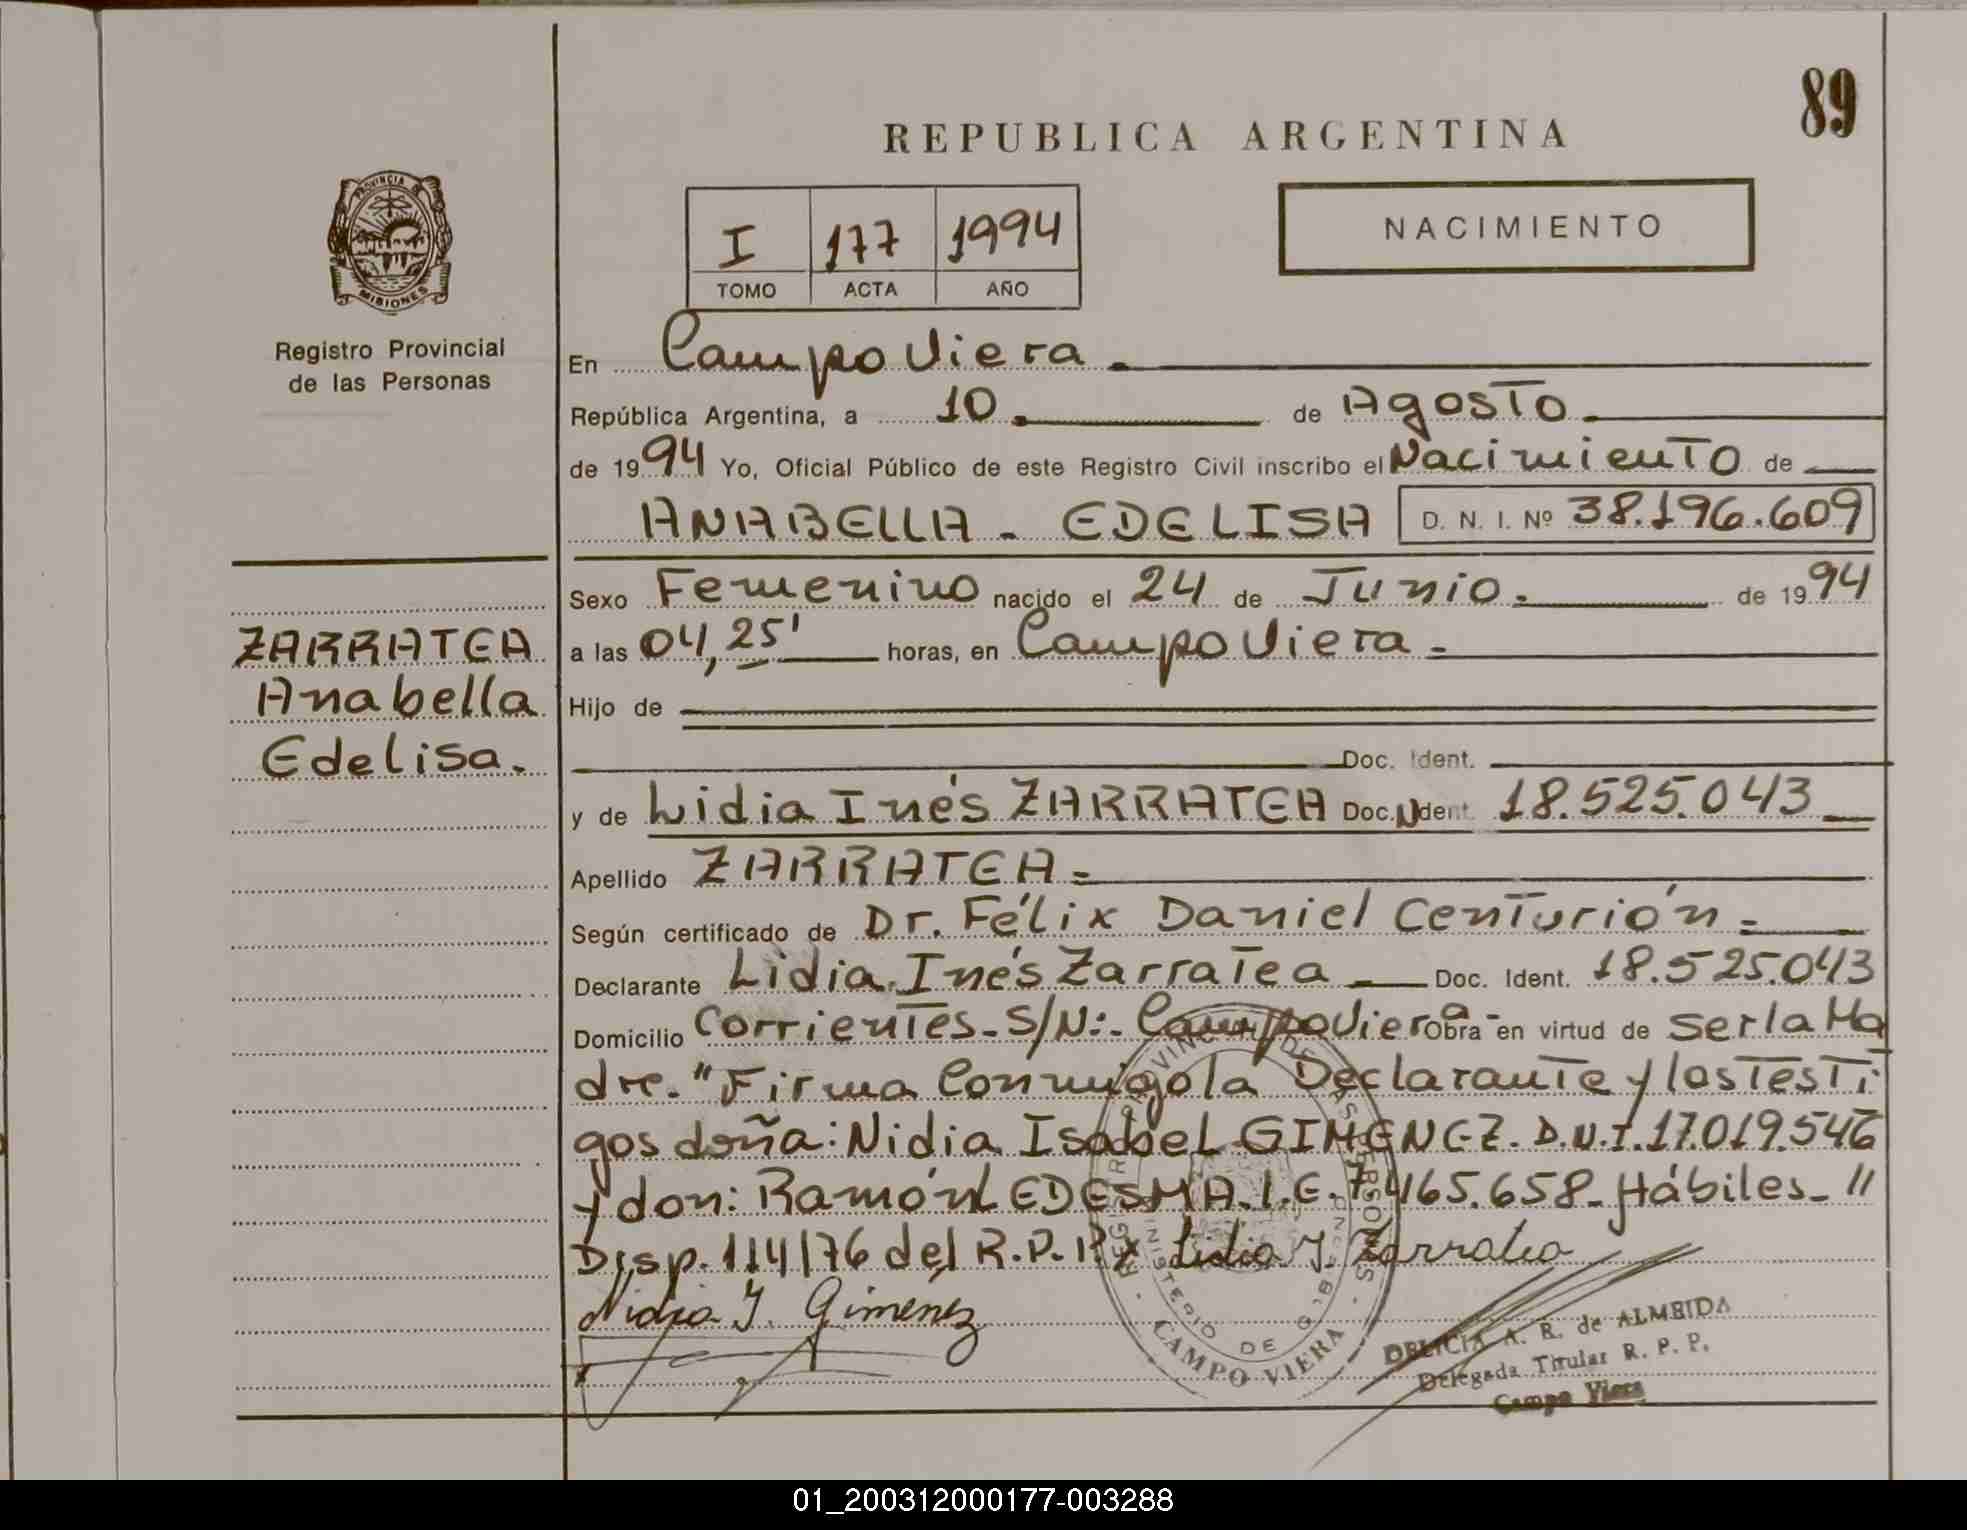 89
REPUBLICA ARGENTINA
PROVINCIA DE
MISIONES
Registro Provincial
de las Personas
I 177 1994
TOMO ACTA AÑO
NACIMIENTO
En Campo Viera.
República Argentina, a 10. de Agosto.
de 1994 Yo, Oficial Público de este Registro Civil inscribo el Nacimiento de
ANABELLA - EDELISA D. N. I. Nº 38.196.609
ZARRATEA
Anabella
Edelisa.
Sexo Femenino nacido el 24 de Junio. de 1994
a las 04,25' horas, en Campo Viera.
Hijo de
Doc. Ident.
y de Lidia Inés ZARRATEA Doc. Ident. 18.525.043
Apellido ZARRATEA
Según certificado de Dr. Félix Daniel Centurión
Declarante Lidia Inés Zarratea Doc. Ident. 18.525.043
Domicilio Corrientes - S/N:- Campo Viera Obra en virtud de ser la Ma
dre. "Firma Conmigo la Declarante y los Testi
gos doña: Nidia Isabel GIMENEZ. D.N.I. 17.019.546
y don: Ramón LEDESMA. L.E. 7.465.658 - Hábiles - "
Disp. 114/76 del R.P.P. x Lidia I. Zarratea
Nidia I. Gimenez
CAMPO VIERA
DELICIA A. R. de ALMEIDA
Delegada Titular R. P. P.
Campo Viera
01_200312000177-003288